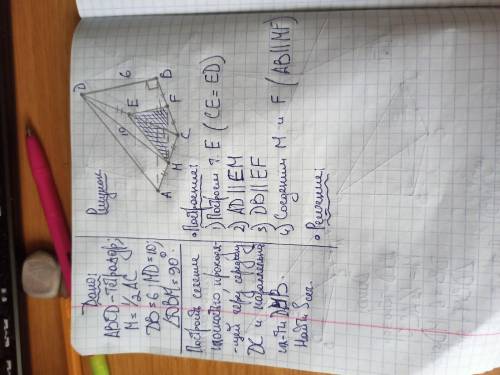 Дано:
ABCD-тетраэдр,
M = 1/2 AC
DB=6, MD=10,
∠DBM=90°
Построить сечение
плоскостью проходя-
щей через середину
DC и параллельно
пл-ти DMB.
Найти Sсеч.
Рисунок
D
6
B
E
10
F
C
M
A
Построение:
1) Построим т. E (CE = ED)
2) AD || EM
3) DB || EF
4) Соединим M и F (AB || MF)
Решение: